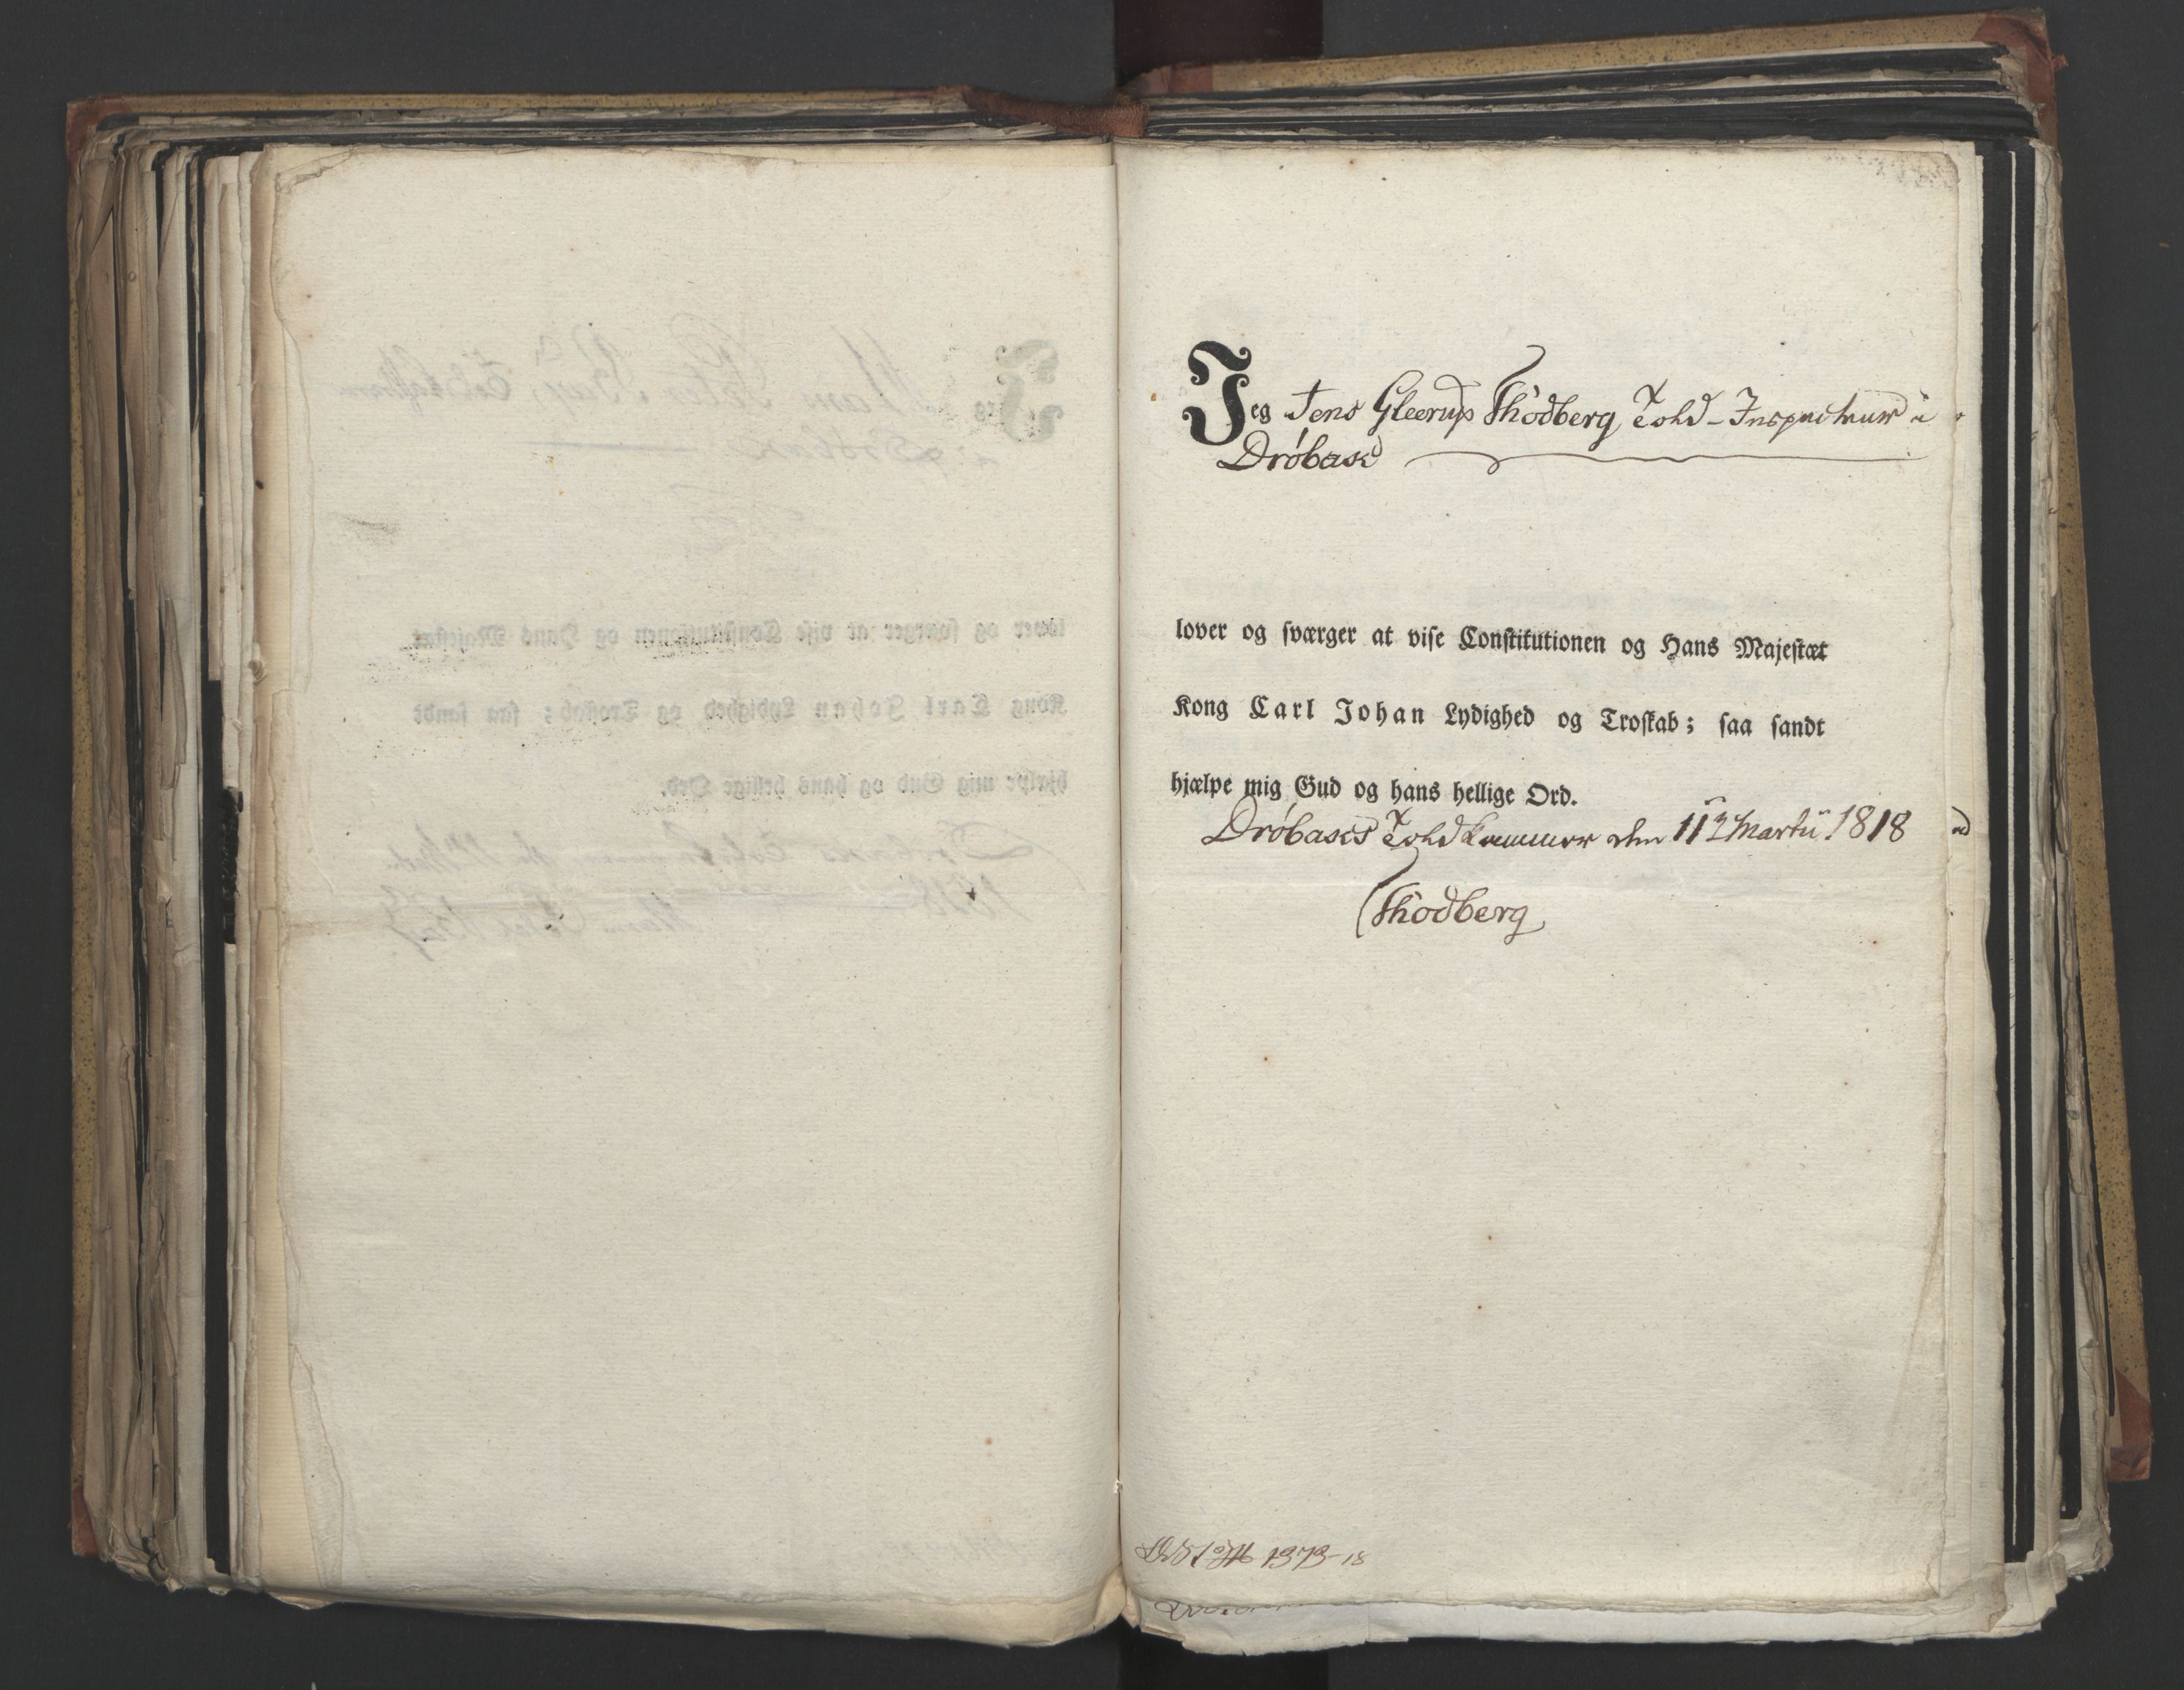 Jeg Jens Gleerup Thodberg Told-Inspecteur i
Drøbak
lover og sværger at vise Constitutionen og Hans Majestæt
Kong Carl Johan Lydighed og Troskab; saa sandt
hjælpe mig Gud og hans hellige Ord.
Drøbaks Toldkammer den 11te Martii 1818
Thodberg
1373-18